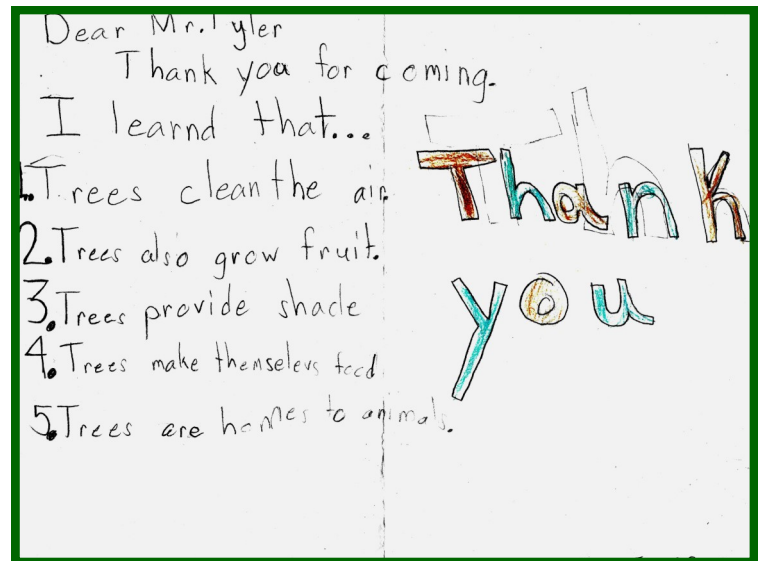 Dear Mr. Tyler
Thank you for coming.
I learnd that...
1. Trees clean the air.
2. Trees also grow fruit.
3. Trees provide shade
4. Trees make themselevs food
5. Trees are homes to animals.
Thank
you